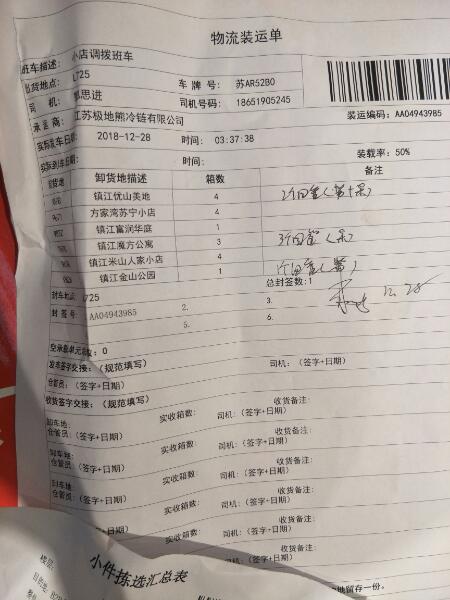 物流装运单
班车描述: 小店调拨班车
出货地点: L725
车 牌 号: 苏AR52B0
司 机: 郭思进
司机号码: 18651905245
承运商: 江苏极地熊冷链有限公司
装运编码: AA04943985
实际发车日期: 2018-12-28 时间: 03:37:38
实际到车日期: 时间: 装载率: 50%
卸货地 卸货地描述 箱数 备注
镇江优山美地 4
方家湾苏宁小店 4
镇江富润华庭 1
镇江魔方公寓 3
镇江米山人家小店 4
镇江金山公园 1
总封签数:1
封车地点: L725
封 签 号: AA04943985 2. 3.
5. 6.
12.28
空承载单元总数: 0
发车签字交接: (规范填写)
仓管员: (签字+日期) 司机: (签字+日期)
收货签字交接: (规范填写)
卸车地: 实收箱数: 收货备注:
仓管员: (签字+日期) 司机: (签字+日期)
卸车地: 实收箱数: 收货备注:
仓管员: (签字+日期) 司机: (签字+日期)
卸车地 实收箱数: 收货备注:
仓管员: (签字+日期) 司机: (签字+日期)
实收箱数: 收货备注:
(签字+日期) 司机: (签字+日期)
小件拣选汇总表
地留存一份。